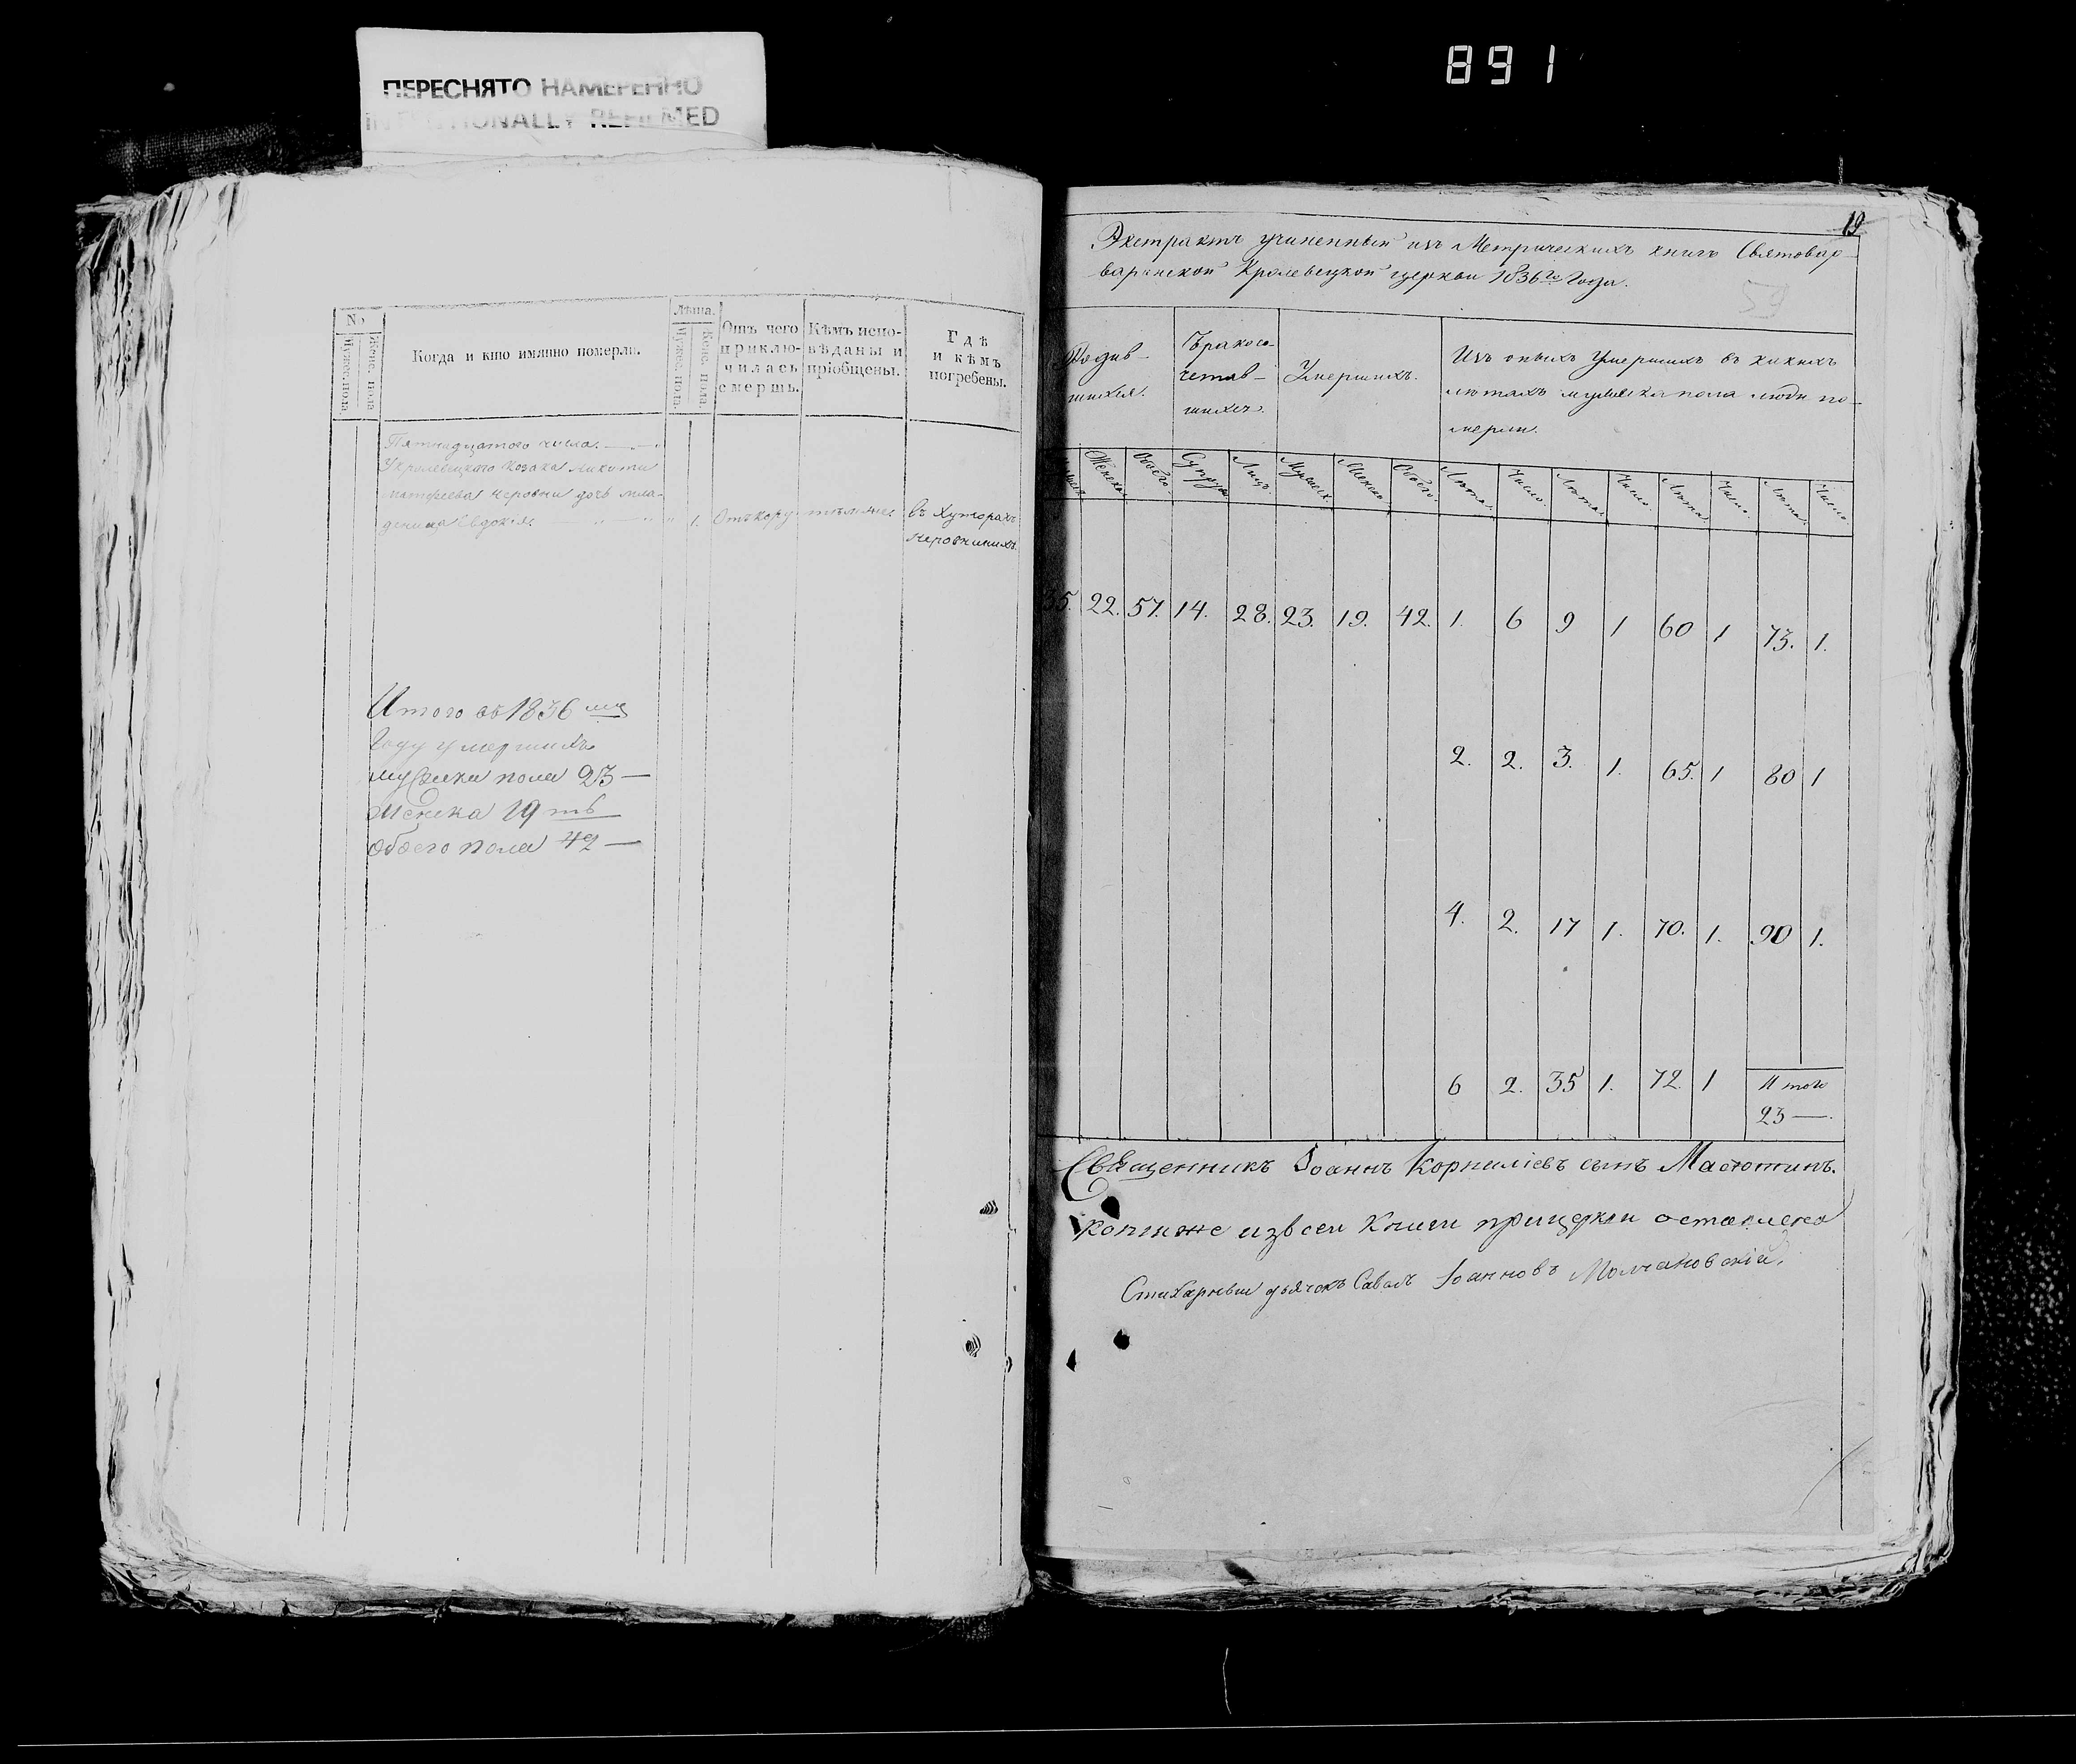 891
ПЕРЕСНЯТО НАМЕРЕННО
INTENTIONALLY REFILMED
№
Мужес. пола
Женс. пола
Когда и кто имянно померли.
Лѣта.
Мужес. пола.
Женс. пола.
Отъ чего
приклю-
чилась
смерть.
Кѣмъ испо-
вѣданы и
пріобщены.
Гдѣ
и кѣмъ
погребены.
Пятнадцатого числа.
Укролевецкого козака Никиты
Матфеева дочь мла-
деница Евдокія 1. Отъ кору въ Хуторахъ
Итого въ 1836
году умершихъ
мужеска пола 23 —
женска 19 ть
обоего пола 42 —
19
Экстрактъ учиненный изъ Метрическихъ книгъ Святовар-
варинской Кролевецкой церкви 1836го Года.
Родив-
шихся.
Бракосо-
четав-
шихся.
Умершихъ.
Изъ оныхъ Умершихъ въ какихъ
лѣтахъ мужеска пола люди по-
мерли.
Женска. Обоего. Супруж. Лицъ. Мужеск. Женско. Обоего. Лѣта. Число. Лѣта. Число. Лѣта. Число. Лѣта. Число.
35. 22. 57. 14. 28. 23. 19. 42. 1. 6 9 1 60 1 73. 1.
2. 2. 3. 1. 65. 1 80 1
4. 2. 17 1. 70. 1. 90 1.
6 2. 35 1. 72. 1 Итого
23 —.
Священникъ Іоаннъ Корниліевъ сынъ Масютинъ.
Копия же изъ сей Книги прицеркви оставлена
Стихарный дьячокъ Савва Іоанновъ Молчановскій.